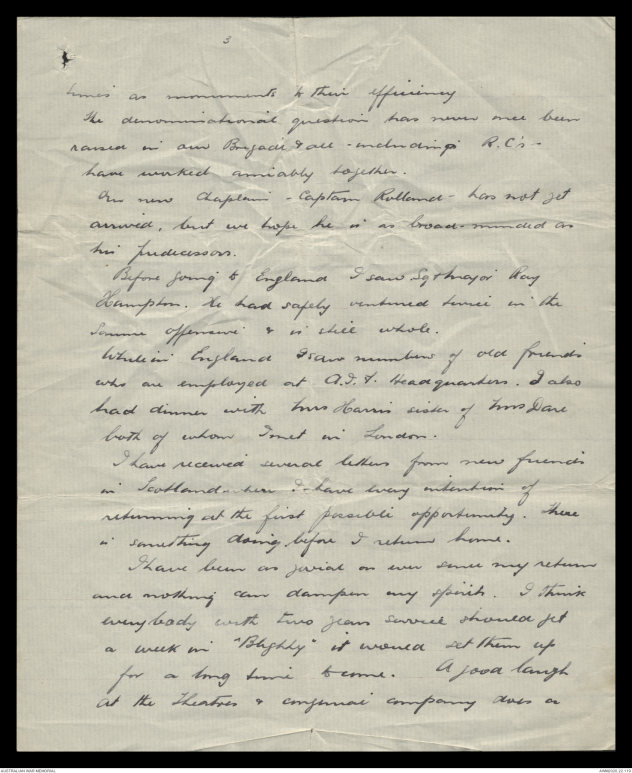 3
times as monuments to their efficiency
The denominational question has never once been
raised in our Brigade & all - including R.C's -
have worked amiably together.
Our new Chaplain - Captain Rolland - has not yet
arrived, but we hope he is as broad-minded as
his predecessors.
Before going to England I saw Sgt Major Ray
Hampton. He had safely ventured twice in the
Somme offensive & is still whole.
While in England I saw numbers of old friends
who are employed at A.I.F. Headquarters. I also
had dinner with Mrs Harris sister of Mrs Dare
both of whom I met in London.
I have received several letters from new friends
in Scotland where I have every intention of
returning at the first possible opportunity. There
is something doing before I return home.
I have been as jovial as ever since my return
and nothing can dampen my spirits. I think
everybody with two years service should get
a week in "Blighty" it would set them up
for a long time to come. A good laugh
at the Theatres & congenial company does a
AUSTRALIAN WAR MEMORIAL